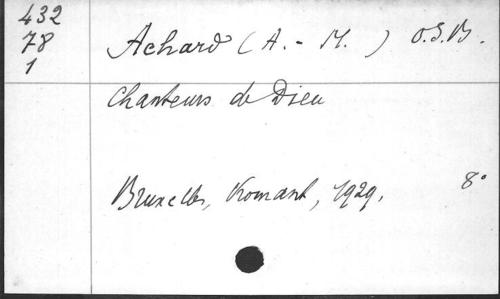 432
78
1
Achard (A.-M.) O.S.B.
Chanteurs de Dieu
Bruxelles, 1929. 8°